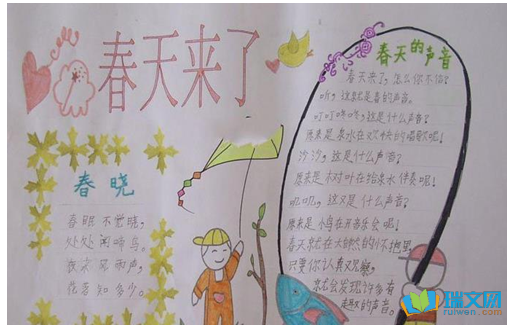 春天来了
春晓
春眠不觉晓,
处处闻啼鸟。
夜来风雨声,
花落知多少。
春天的声音
春天来了,怎么你不信?
听,这就是春的声音。
叮叮咚咚,这是什么声音?
原来是泉水在欢快的唱歌呢!
沙沙,这是什么声音?
原来是树叶在给泉水伴奏呢!
呃呃,这又是什么声音?
原来是小鸟在开音乐会呢!
春天就在大自然的怀抱里,
只要你认真观察,
就会发现许多有
趣的声音。
瑞文网
ruiwen.com